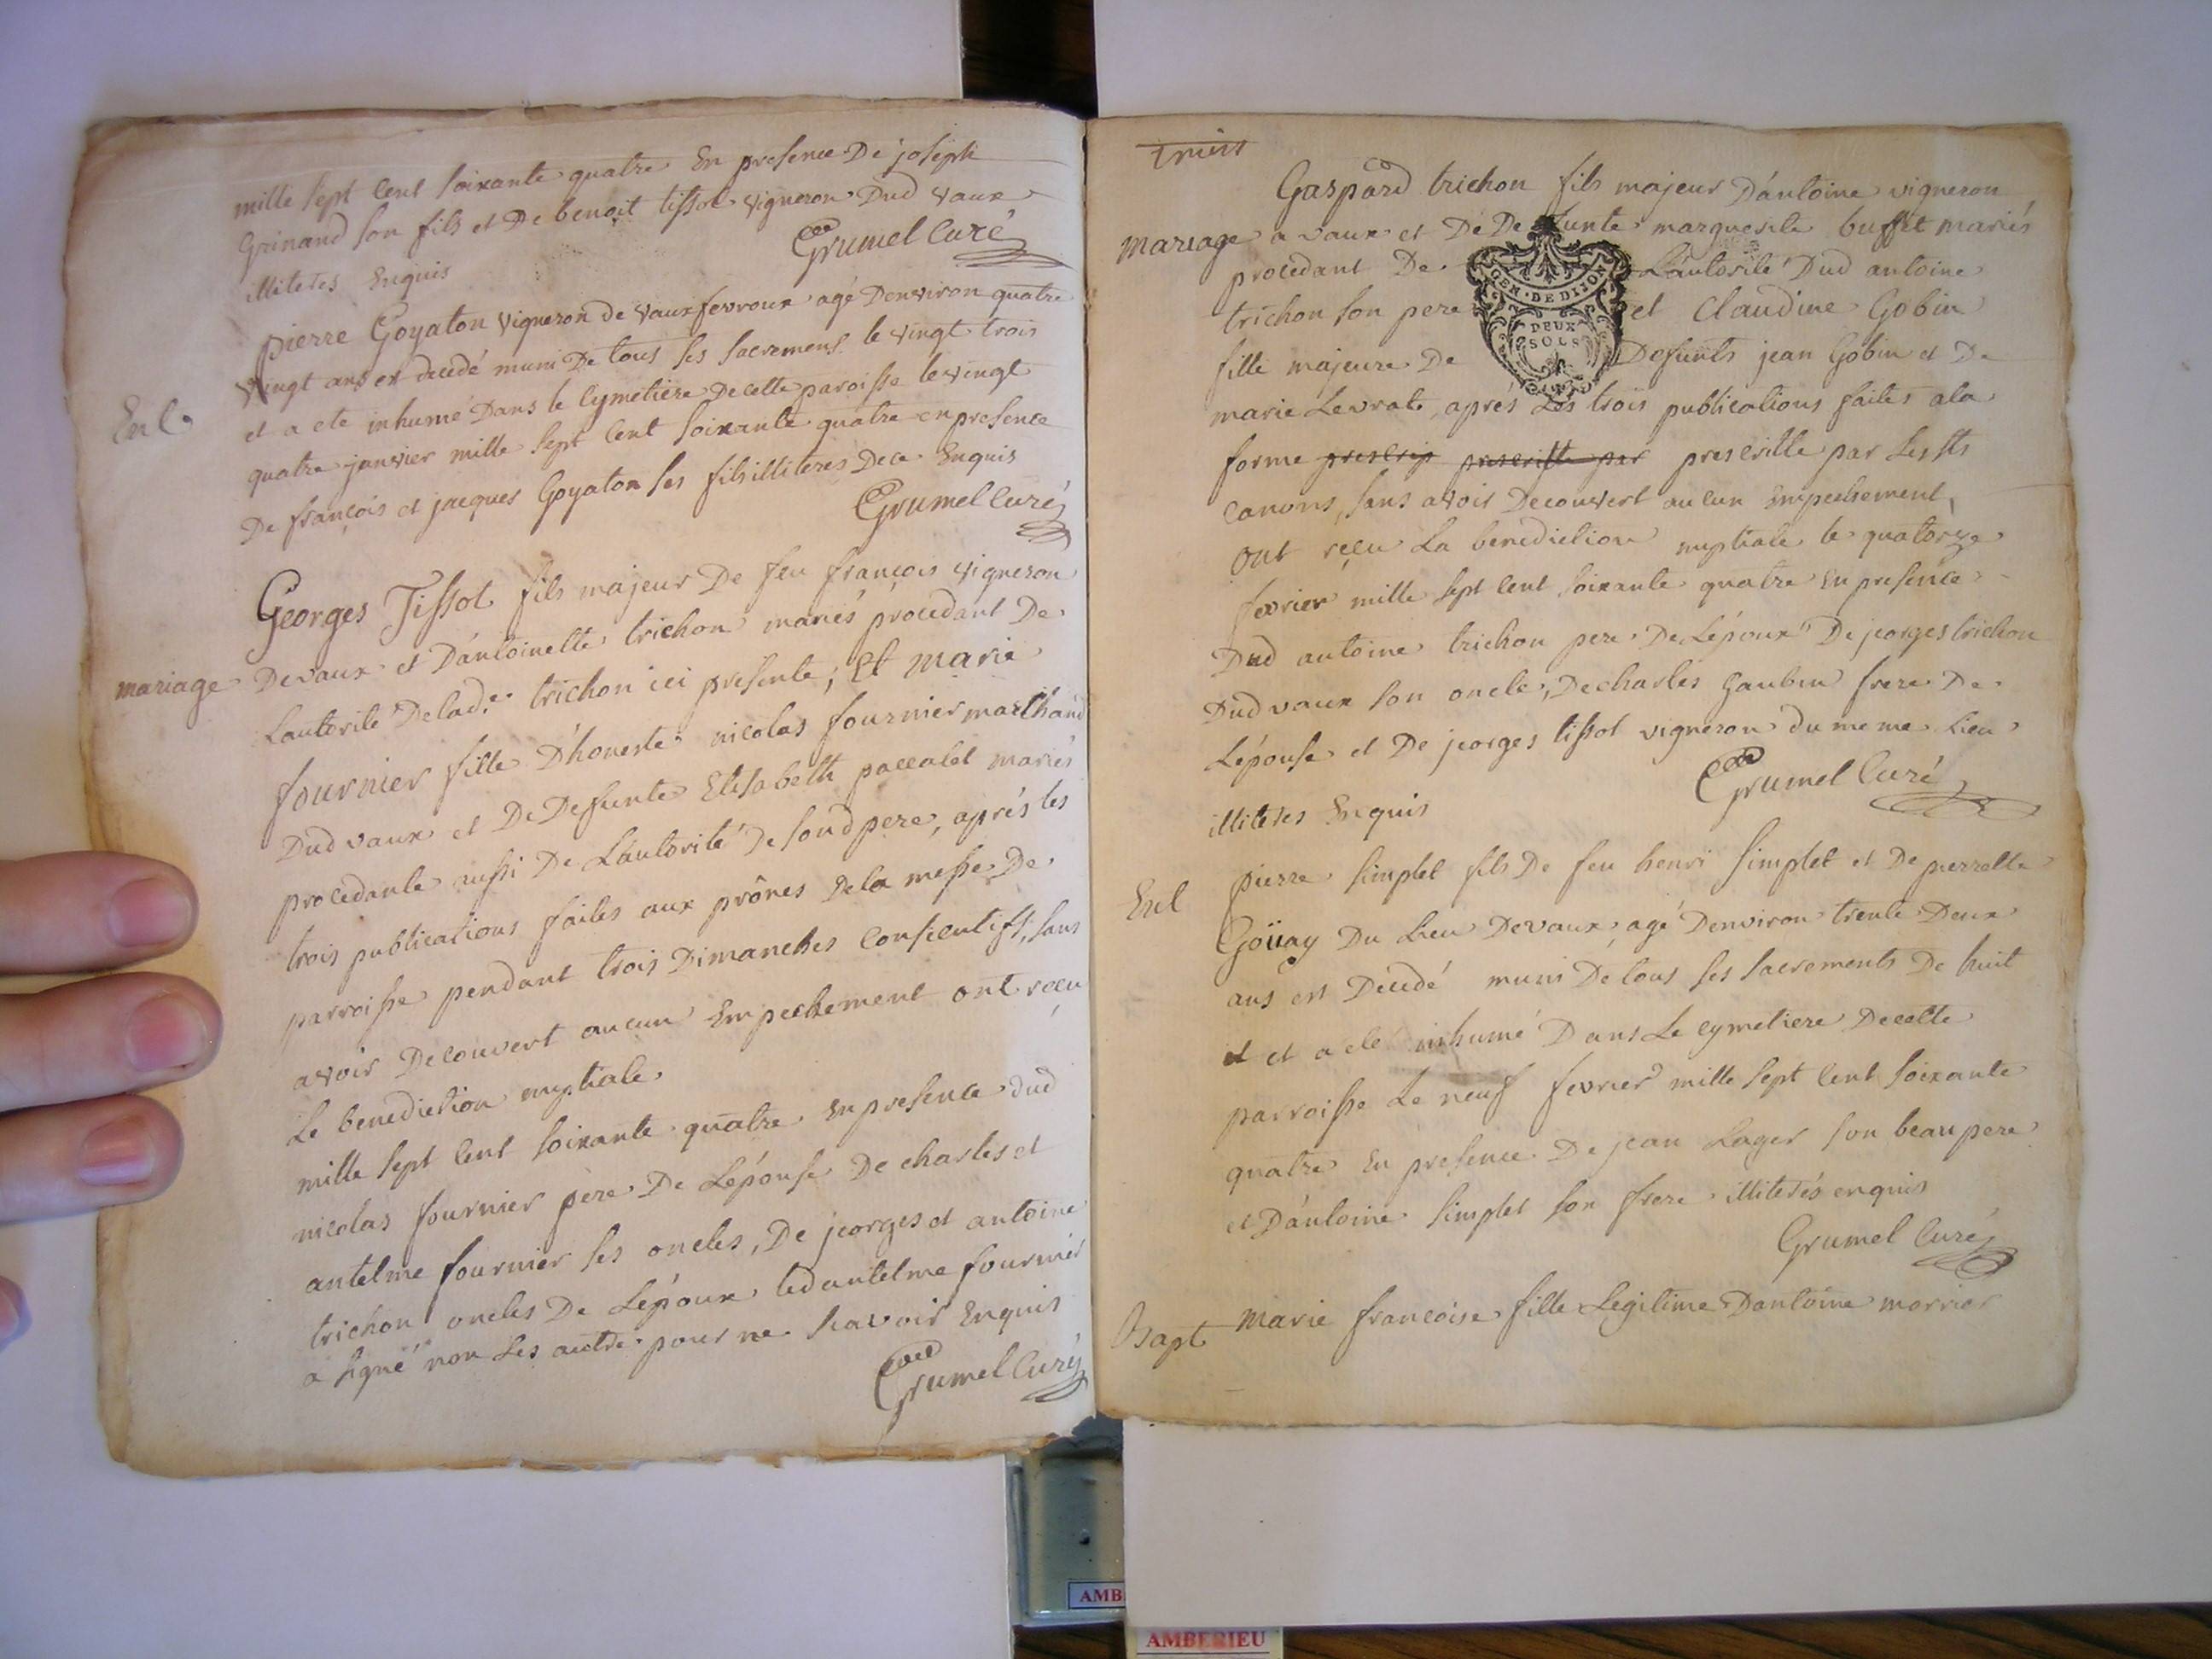 mille sept cent soixante quatre En presence De joseph
Grinand son fils et De benoit tissot vigneron Dud vaux
illiteres Enquis Grumel Curé
Ent.
pierre Goyaton vigneron de vauxfevroux agé Denviron quatre
vingt ans est decedé muni De tous ses sacremens le vingt trois
et a eté inhumé Dans le Cymetiere De cette paroisse le vingt
quatre janvier mille sept cent soixante quatre en presence
De françois et jacques Goyaton ses fils illiteres De ce Enquis
Grumel Curé
mariage
Georges Tissot fils majeur De feu françois vigneron
De vaux et D'antoinette trichon mariés procedant De
Lautorité De lad.e trichon ici presente; Et Marie
fournier fille D'honeste nicolas fournier marchand
Dud vaux et De Defunte Elisabeth paccalet mariés
procedante aussi De L'autorité De sond pere, aprés les
trois publications faites aux prônes De la messe De
parroisse pendant trois Dimanches consecutifs, sans
avoir Decouvert aucun Empechement ont reçu
Le benediction nuptiale
mille sept cent soixante quatre En presence dud
nicolas fournier pere De L'épouse De charles et
antelme fournier ses oncles, De jeorges et antoine
trichon oncles De L'époux led antelme fournier
a signé non Les autre pour ne sçavoir Enquis
Grumel Curé
Gaspard trichon fils majeur D'antoine vigneron
mariage
a vaux et De Defunte marguerite buffet mariés
procedant De L'autorité Dud antoine
trichon son pere et Claudine Gobin
GEN · DE DIJON
DEUX
SOLS
fille majeure De Defunts jean Gobin et De
marie Levrat, aprés Les trois publications faites a la
forme prescrip prescritte par prescritte par Les Sts
canons, sans avoir Decouvert aucun Empechement
ont reçu La benediction nuptiale le quatorze
fevrier mille sept cent soixante quatre En presence
Dud antoine trichon pere De L'époux De jeorges trichon
Dud vaux son oncle, De charles Gaubin frere De
L'épouse et De jeorges tissot vigneron du meme Lieu
illiteres Enquis Grumel Curé
Ent
pierre simplet fils De feu henri simplet et De pierrette
Goüay Du Lieu De vaux, agé Denviron trente Deux
ans est Decedé muni De tous ses sacrements De huit
et et a eté inhumé Dans Le cymetiere De cette
parroisse Le neuf fevrier mille sept cent soixante
quatre En presence De jean Lager son beau pere
et D'antoine simplet son frere illiterés enquis
Grumel Curé
Bapt
Marie françoise fille Legitime D'antoine
AMB
AMBERIEU